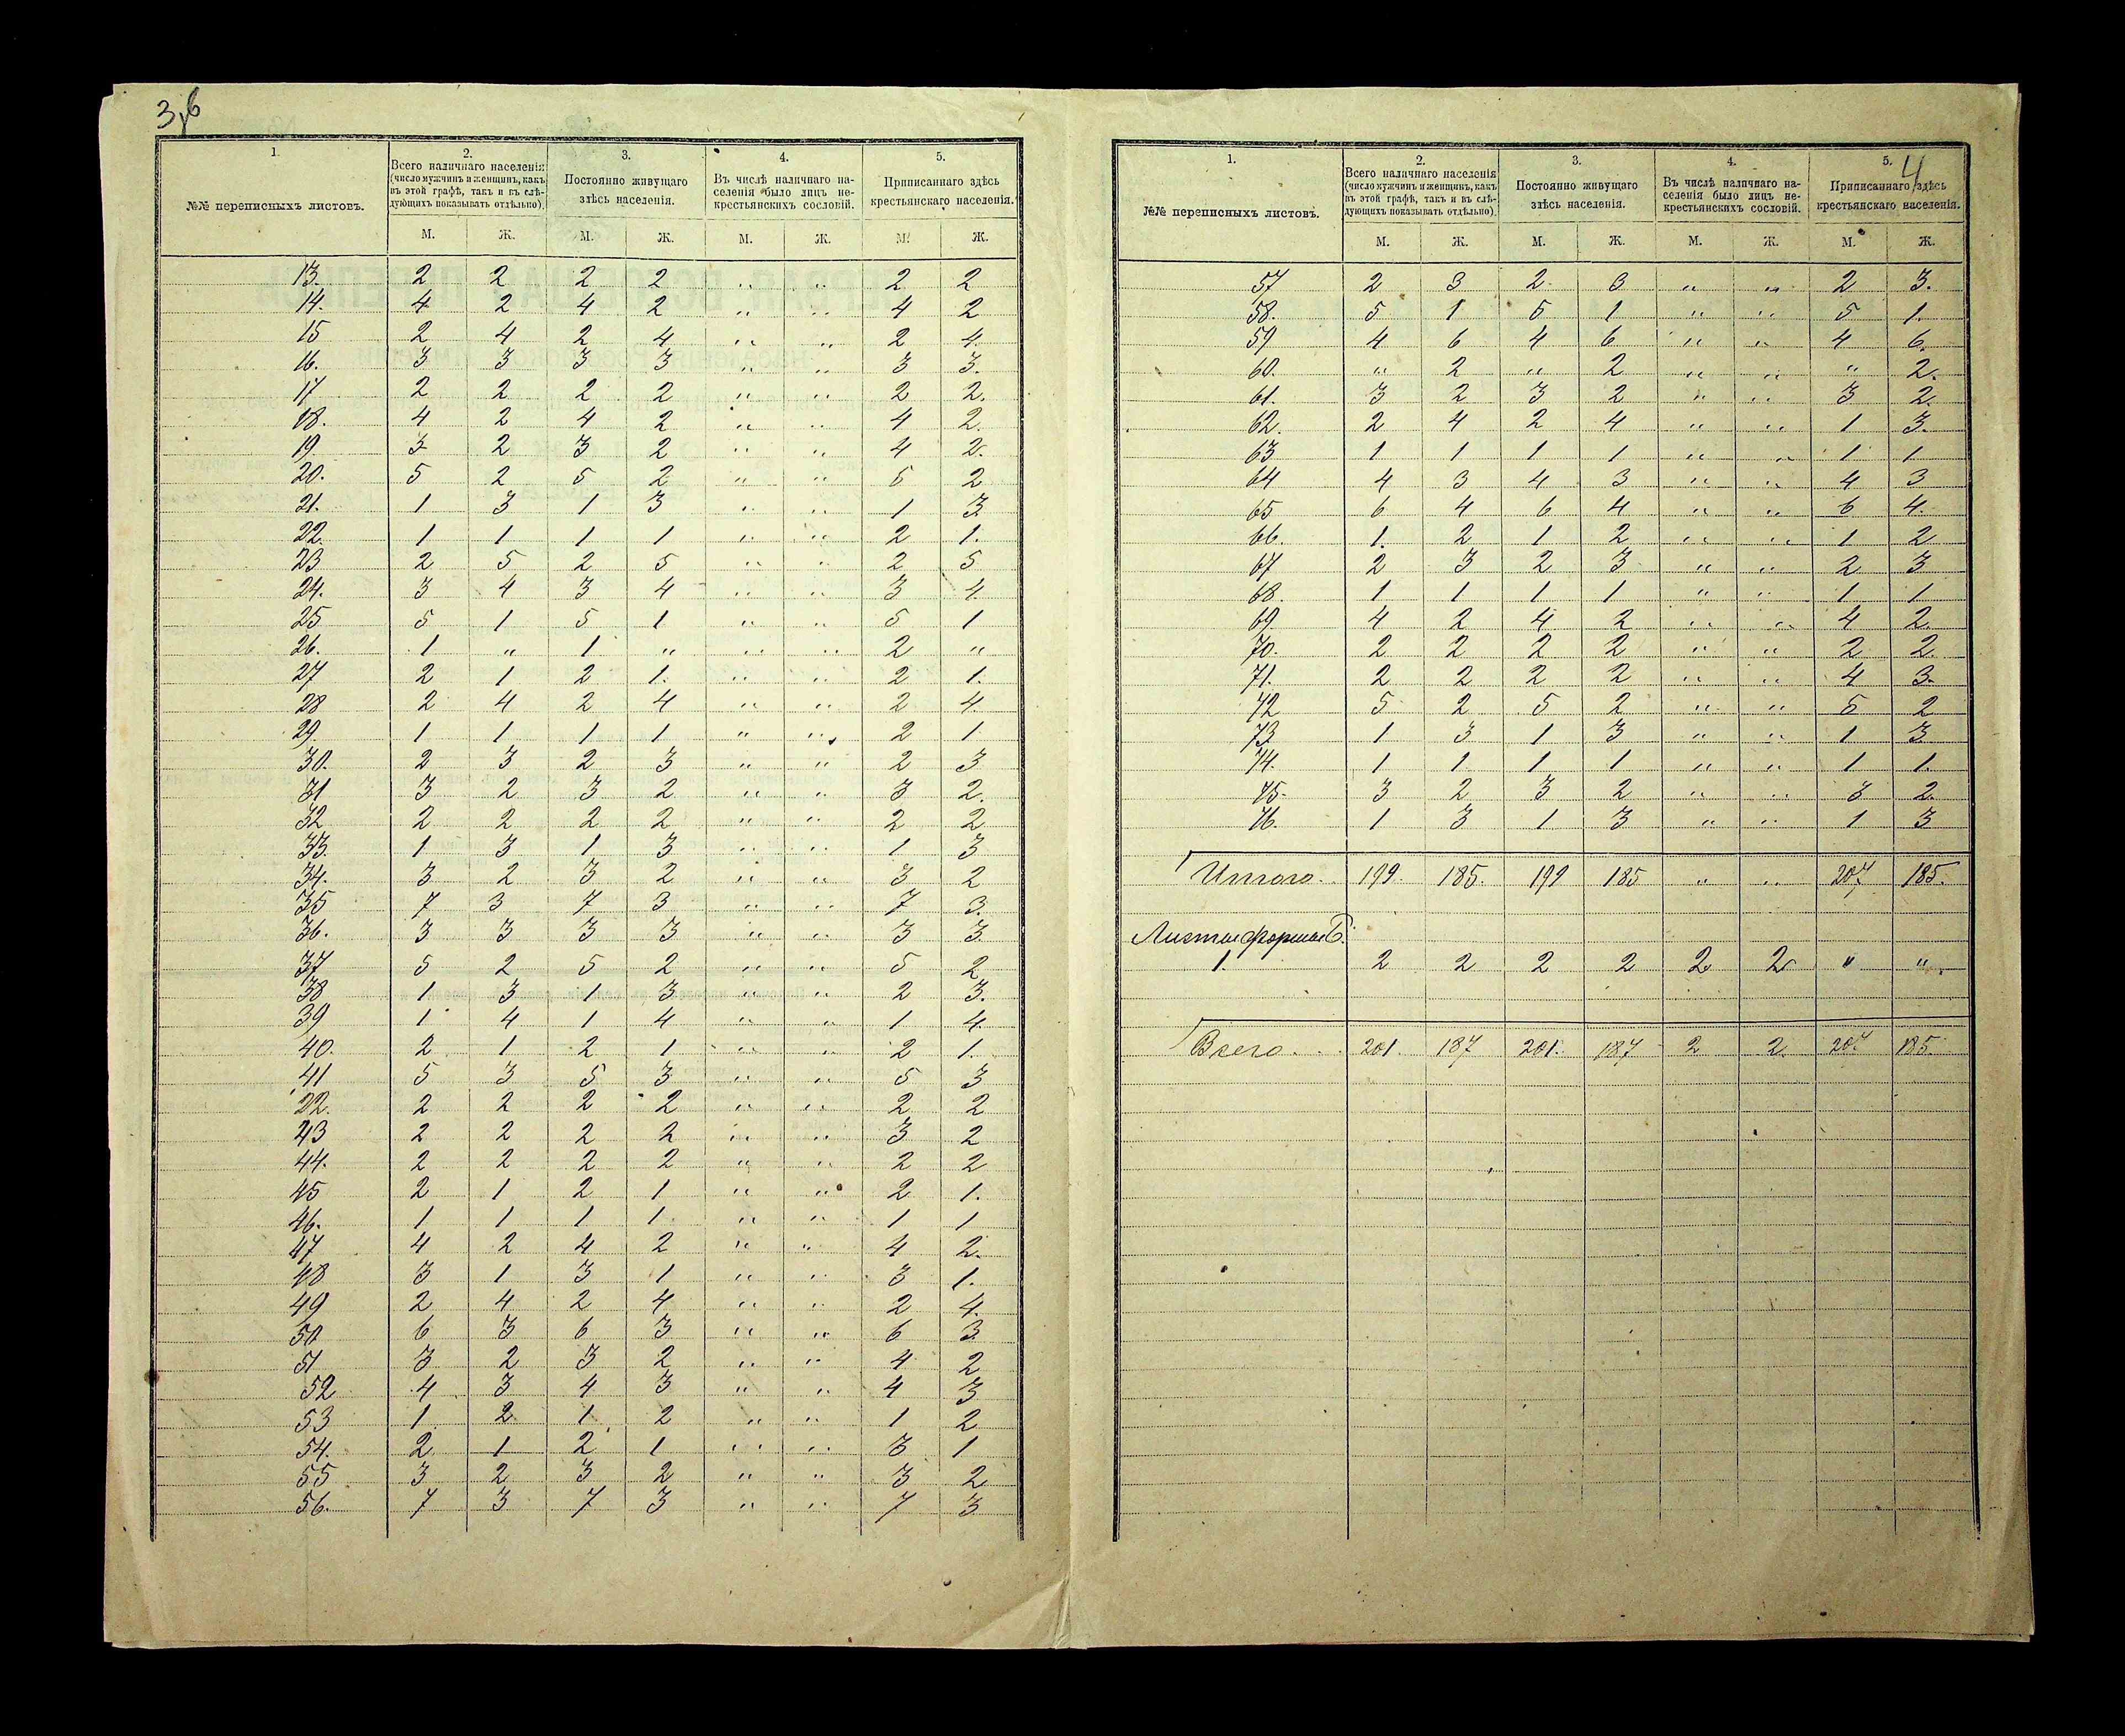 3,б
1. 2. 3. 4. 5.
№№ переписныхъ листовъ. Всего наличнаго населенія (число мужчинъ и женщинъ, какъ въ этой графѣ, такъ и въ слѣдующихъ показывать отдѣльно). Постоянно живущаго здѣсь населенія. Въ числѣ наличнаго населенія было лицъ некрестьянскихъ сословій. Приписаннаго здѣсь крестьянскаго населенія.
М. Ж. М. Ж. М. Ж. М. Ж.
13. 2 2 2 2 " " 2 2
14. 4 2 4 2 " " 4 2
15 2 4 2 4 " " 2 4.
16. 3 3 3 3 " " 3 3.
17 2 2 2 2 " " 2 2.
18. 4 2 4 2 " " 4 2.
19. 3 2 3 2 " " 4 2.
20. 5 2 5 2 " " 5 2
21. 1 3 1 3 " " 1 3
22. 1 1 1 1 " " 2 1.
23 2 5 2 5 " " 2 5
24. 3 4 3 4 " " 3 4.
25 5 1 5 1 " " 5 1
26. 1 " 1 " " " 2 "
27 2 1 2 1. " " 2 1.
28 2 4 2 4 " " 2 4
29. 1 1 1 1 " " 2 1
30. 2 3 2 3 " " 2 3
31 3 2 3 2 " " 3 2.
32 2 2 2 2 " " 2 2
33. 1 3 1 3 " " 1 3
34. 3 2 3 2 " " 3 2
35 7 3 7 3 " " 7 3.
36. 3 3 3 3 " " 3 3.
37 5 2 5 2 " " 5 2
38 1 3 1 3 " " 2 3.
39 1 4 1 4 " " 1 4.
40. 2 1 2 1 " " 2 1.
41 5 3 5 3 " " 5 3
22. 2 2 2 2 " " 2 2
43 2 2 2 2 " " 3 2
44. 2 2 2 2 " " 2 2
45 2 1 2 1 " " 2 1.
46. 1 1 1 1 " " 1 1
47 4 2 4 2 " " 4 2.
48 3 1 3 1 " " 3 1.
49 2 4 2 4 " " 2 4.
50 6 3 6 3 " " 6 3
51 3 2 3 2 " " 4 2
52 4 3 4 3 " " 4 3
53 1 2 1 2 " " 1 2
54. 2 1 2 1 " " 3 1
55 3 2 3 2 " " 3 2
56. 7 3 7 3 " " 7 3
4
1. 2. 3. 4. 5.
№№ переписныхъ листовъ. Всего наличнаго населенія (число мужчинъ и женщинъ, какъ въ этой графѣ, такъ и въ слѣдующихъ показывать отдѣльно). Постоянно живущаго здѣсь населенія. Въ числѣ наличнаго населенія было лицъ некрестьянскихъ сословій. Приписаннаго здѣсь крестьянскаго населенія.
М. Ж. М. Ж. М. Ж. М. Ж.
57 2 3 2 3 " " 2 3.
58. 5 1 5 1 " " 5 1.
59 4 6 4 6 " " 4 6.
60. " 2 " 2 " " " 2.
61. 3 2 3 2 " " 3 2.
62. 2 4 2 4 " " 1 3.
63 1 1 1 1 " " 1 1
64 4 3 4 3 " " 4 3
65 6 4 6 4 " " 6 4.
66 1. 2 1 2 " " 1 2
67 2 3 2 3 " " 2 3
68. 1 1 1 1 " " 1 1
69. 4 2 4 2 " " 4 2.
70. 2 2 2 2 " " 2 2.
71. 2 2 2 2 " " 4 3.
72 5 2 5 2 " " 5 2
73 1 3 1 3 " " 1 3
74. 1 1 1 1 " " 1 1.
75. 3 2 3 2 " " 3 2.
76. 1 3 1 3 " " 1 3
Итого. 199. 185. 199 185 " " 207 185.
Листы формы Б.
1. 2 2 2 2 2 2 " ".
Всего. 201. 187 201. 187 2 2. 207 185.